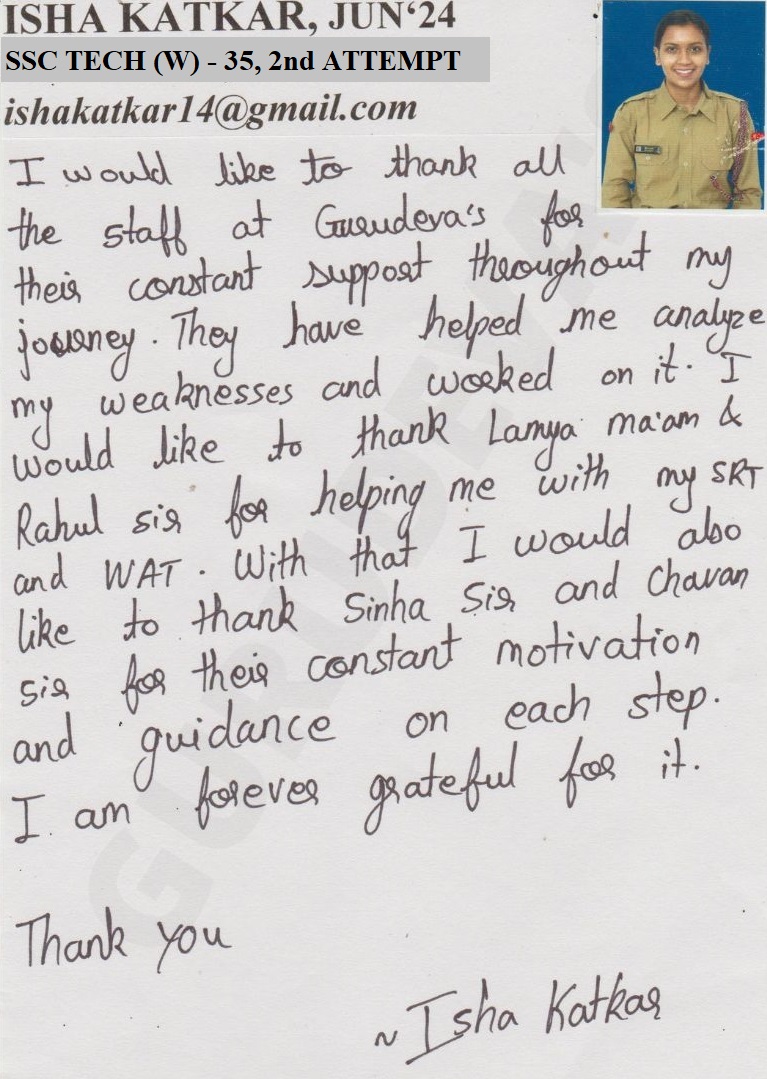 ISHA KATKAR, JUN‘24
SSC TECH (W) - 35, 2nd ATTEMPT
ishakatkar14@gmail.com
I would like to thank all
the staff at Gurudeva's for
their constant support throughout my
journey. They have helped me analyze
my weaknesses and worked on it. I
would like to thank Lamya ma'am &
Rahul sir for helping me with my SRT
and WAT. With that I would also
like to thank Sinha Sir and Chavan
sir for their constant motivation
and guidance on each step.
I am forever grateful for it.
Thank you
~ Isha Katkar
GURUDEVA'S